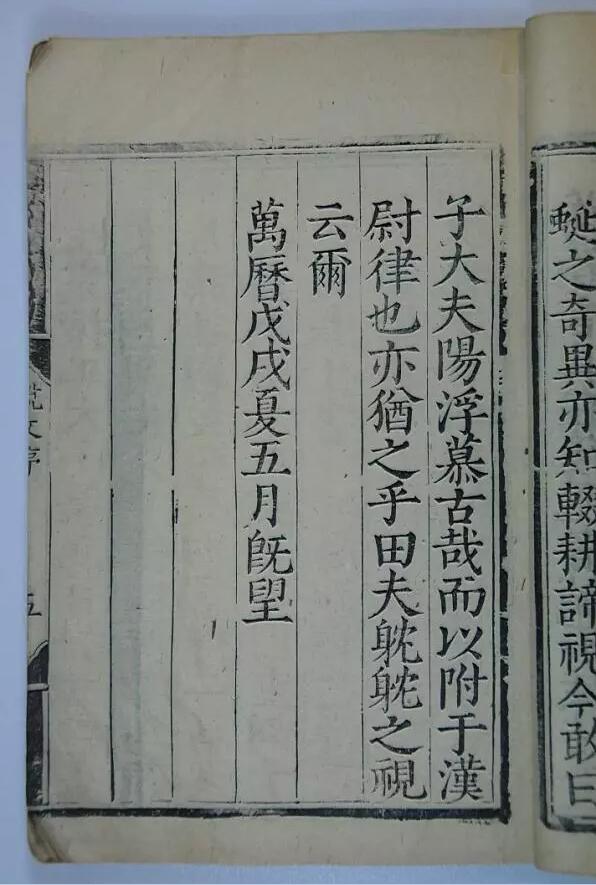 蜒之奇異亦知輟耕諦視今敢曰
子大夫陽浮慕古哉而以附于漢
尉律也亦猶之乎田夫躭躭之視
云爾
萬曆戊戌夏五月旣望
說文序
五